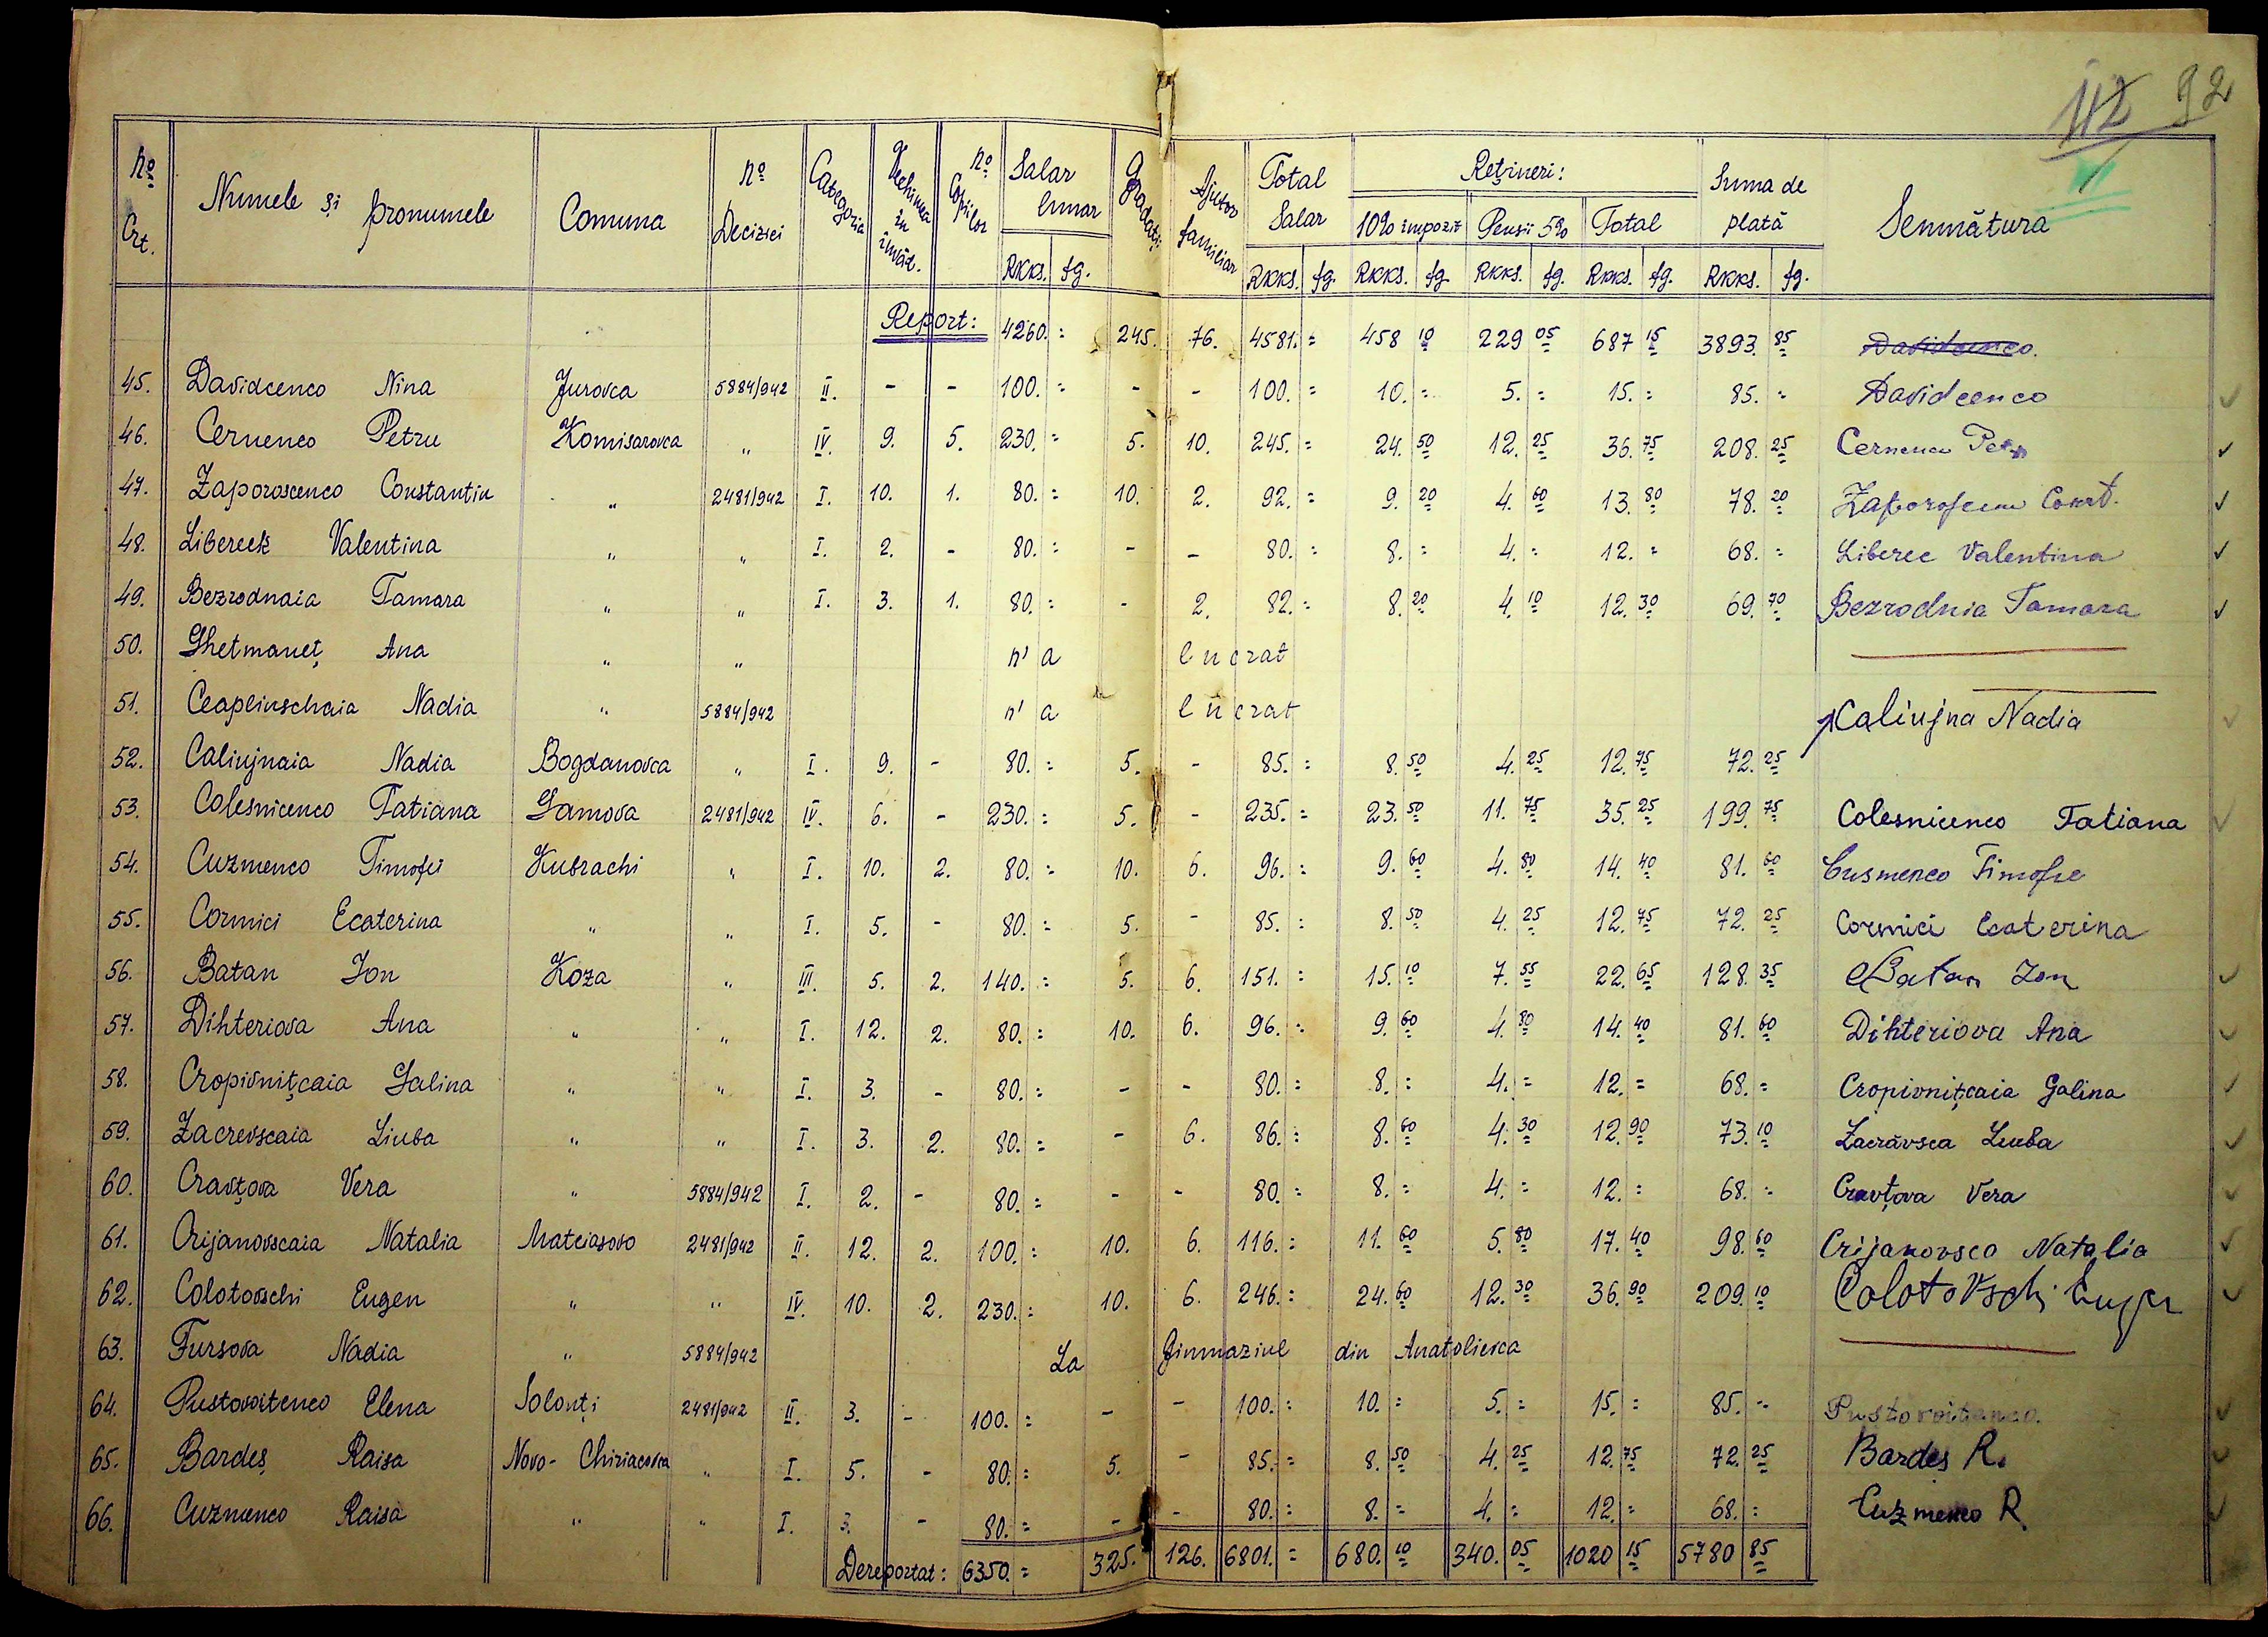 112 92
Nº Crt. Numele și pronumele Comuna Nº Deciziei Categoria Vechimea în învăț. Nº Copiilor Salar lunar Gradații Ajutor familiar Total Salar Rețineri: Suma de plată Semnătura
10% impozit Pensii 5% Total
RKKS. fg. RKKS. fg. RKKS. fg RKKS. fg. RKKS. fg. RKKS. fg.
Report: 4260.= 245. 76. 4581.= 458 10 229 05 687 15 3893. 85 Davidcenco.
45. Davidcenco Nina Jurovca 5884/942 II. - - 100.= - - 100.= 10.= 5.= 15.= 85.= Davidcenco
46. Cernenco Petru Komisarovca " IV. 9. 5. 230.= 5. 10. 245.= 24. 50 12. 25 36. 75 208. 25 Cernenco Petru
47. Zaporoscenco Constantin " 2481/942 I. 10. 1. 80.= 10. 2. 92.= 9. 20 4. 60 13. 80 78. 20 Const.
48. Libereck Valentina " " I. 2. - 80.= - - 80.= 8.= 4.= 12.= 68.= Liberec Valentina
49. Bezrodnaia Tamara " " I. 3. 1. 80.= - 2. 82.= 8. 20 4. 10 12. 30 69. 70 Bezrodnia Tamara
50. Ghetmaneț Ana " " n'a lucrat
51. Ceaplinschaia Nadia " 5884/942 n'a lucrat Caliujna Nadia
52. Caliujnaia Nadia Bogdanovca " I. 9. - 80.= 5. - 85.= 8. 50 4. 25 12. 75 72. 25
53. Colesnicenco Tatiana Gamova 2481/942 IV. 6. - 230.= 5. - 235.= 23. 50 11. 75 35. 25 199. 75 Colesnicenco Tatiana
54. Cuzmenco Timofei Kubrachi " I. 10. 2. 80.= 10. 6. 96.= 9. 60 4. 80 14. 40 81. 60 Cusmenco Timofie
55. Cormici Ecaterina " " I. 5. - 80.= 5. - 85.= 8. 50 4. 25 12. 75 72. 25 Cormici Ecaterina
56. Batan Ion Koza " III. 5. 2. 140.= 5. 6. 151.= 15. 10 7. 55 22. 65 128. 35 Batan Ion
57. Dihteriova Ana " " I. 12. 2. 80.= 10. 6. 96.= 9. 60 4. 80 14. 40 81. 60 Dihteriova Ana
58. Cropivnițcaia Galina " " I. 3. - 80.= - - 80.= 8.= 4.= 12.= 68.= Cropivnițcaia Galina
59. Zacrevscaia Liuba " " I. 3. 2. 80.= - 6. 86.= 8. 60 4. 30 12. 90 73. 10 Zacrăvsca Liuba
60. Cravțova Vera " 5884/942 I. 2. - 80.= - - 80.= 8.= 4.= 12.= 68.= Cravțova Vera
61. Crijanovscaia Natalia Mateiasovo 2481/942 II. 12. 2. 100.= 10. 6. 116.= 11. 60 5. 80 17. 40 98. 60 Crijanovsca Natalia
62. Colotovschi Eugen " " IV. 10. 2. 230.= 10. 6. 246.= 24. 60 12. 30 36. 90 209. 10 Colotovschi Eugen
63. Fursova Nadia " 5884/942 La Gimnaziul din Anatolievca
64. Pustovoitenco Elena Solonți 2481/942 II. 3. - 100.= - - 100.= 10.= 5.= 15.= 85.= Pustovoitenco.
65. Bardeș Raisa Novo-Chiriacovca " I. 5. - 80.= 5. - 85.= 8. 50 4. 25 12. 75 72. 25 Bardes R.
66. Cuzmenco Raisa " " I. 3. - 80.= - - 80.= 8.= 4.= 12.= 68.= Cuzmenco R.
Dereportat: 6350.= 325. 126. 6801.= 680. 10 340. 05 1020 15 5780 85